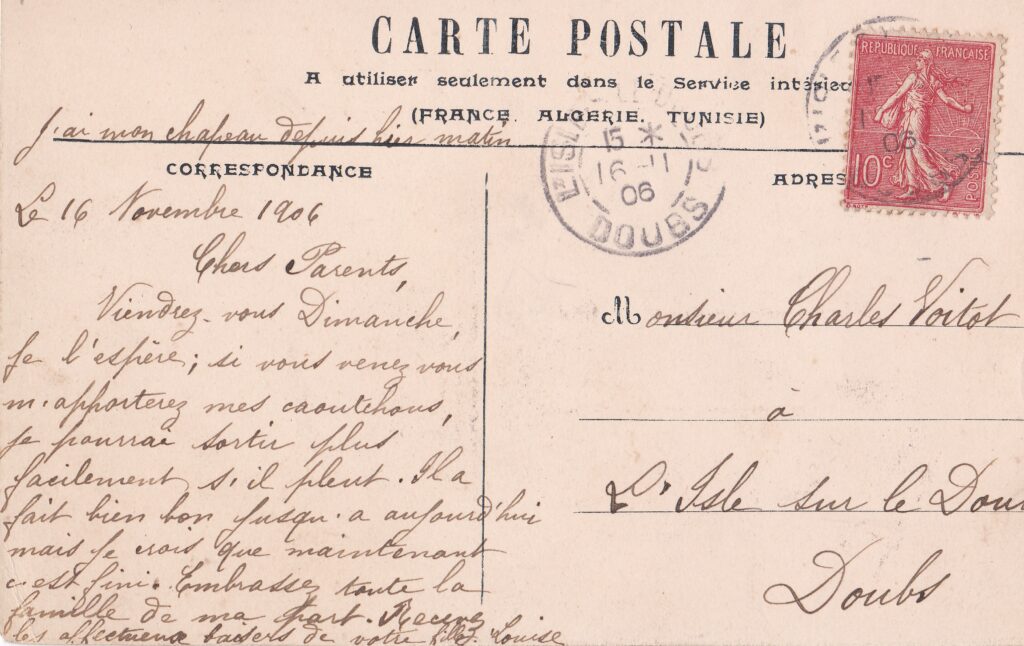 CARTE POSTALE
A utiliser seulement dans le Service intérieu
(FRANCE, ALGERIE, TUNISIE)
J'ai mon chapeau depuis hier matin
CORRESPONDANCE
ADRES
REPUBLIQUE FRANÇAISE
10c
POSTES
L'ISLE
15 *
16 -11
06
DOUBS
06
Le 16 Novembre 1906
Chers Parents,
Viendrez-vous Dimanche,
je l'espère; si vous venez vous
m'apporterez mes caoutchous,
je pourrai sortir plus
facilement s'il pleut. Il a
fait bien bon jusqu'a aujourd'hui
mais je crois que maintenant
c'est fini. Embrassez toute la
famille de ma part. Recevez
les affectueux baisers de votre fille. Louise
Monsieur Charles Voitot
à
L'Isle sur le Dou
Doubs